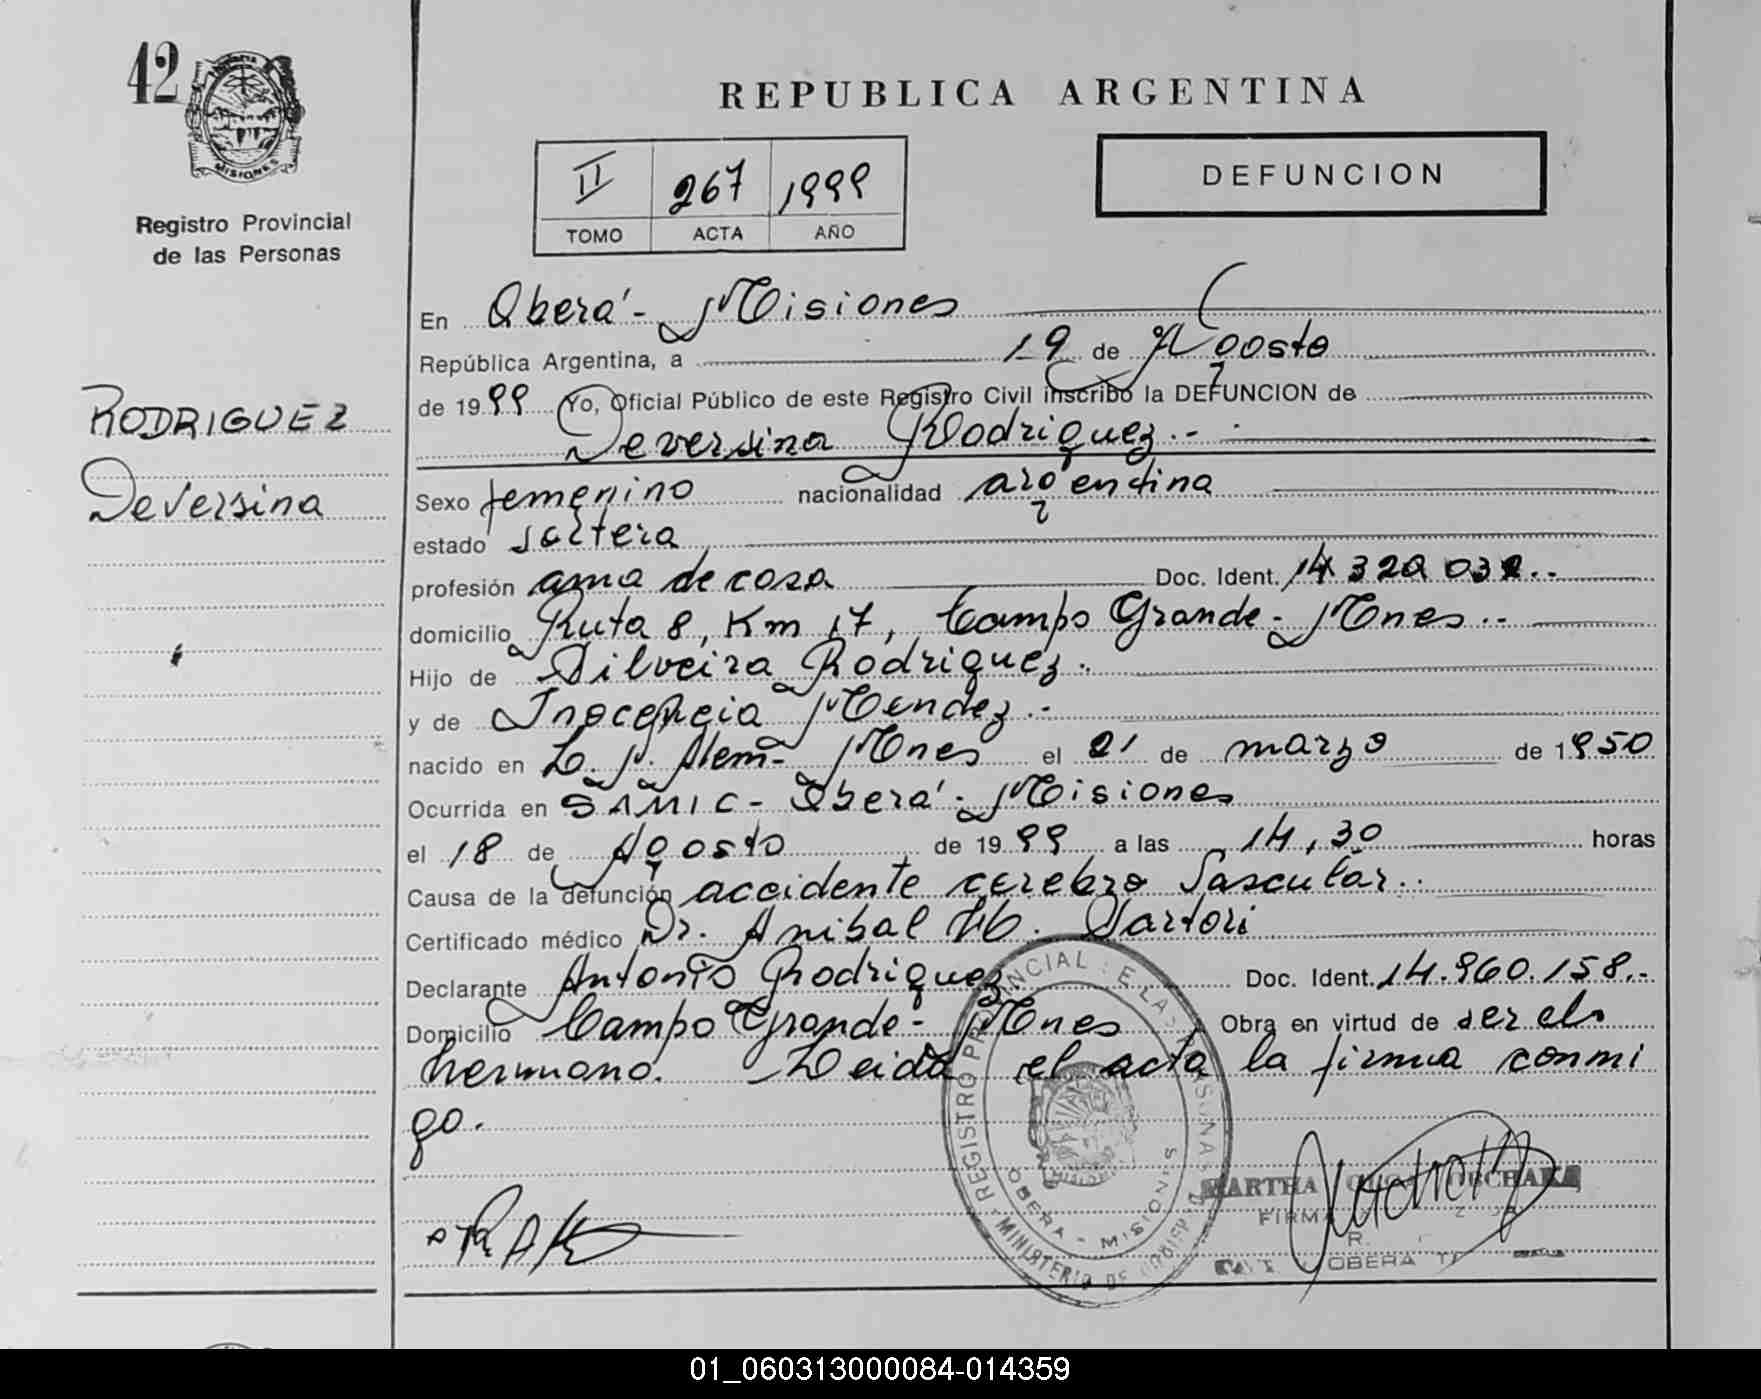 42
MISIONES
Registro Provincial
de las Personas
RODRIGUEZ
Deversina
REPUBLICA ARGENTINA
II 267 1999
TOMO ACTA AÑO
DEFUNCION
En Oberá - Misiones
República Argentina, a 19 de Agosto
de 1999 Yo, Oficial Público de este Registro Civil inscribo la DEFUNCION de
Deversina Rodriguez.-
Sexo femenino nacionalidad argentina
estado soltera
profesión ama de casa Doc. Ident. 14 322 032.-
domicilio Ruta 8, Km 17, Campo Grande - Mnes.-
Hijo de Silveira Rodriguez.
y de Inocencia Mendez.-
nacido en L. N. Alem - Mnes el 21 de marzo de 1950
Ocurrida en SAMIC - Oberá - Misiones
el 18 de Agosto de 1999 a las 14,30 horas
Causa de la defunción accidente cerebro vascular.-
Certificado médico Dr. Anibal H. Sartori
Declarante Antonio Rodriguez Doc. Ident. 14.960.158.-
Domicilio Campo Grande - Mnes Obra en virtud de ser el
hermano. Leida el acta la firma conmi
go.
REGISTRO PROVINCIAL DE LAS PERSONAS
OBERA - MISIONES
MINISTERIO DE GOBIERNO
MARTHA
FIRMA
OBERA
01_060313000084-014359